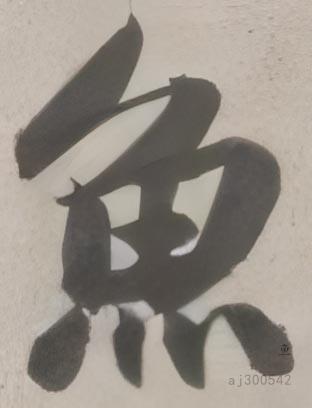 魚
aj300542